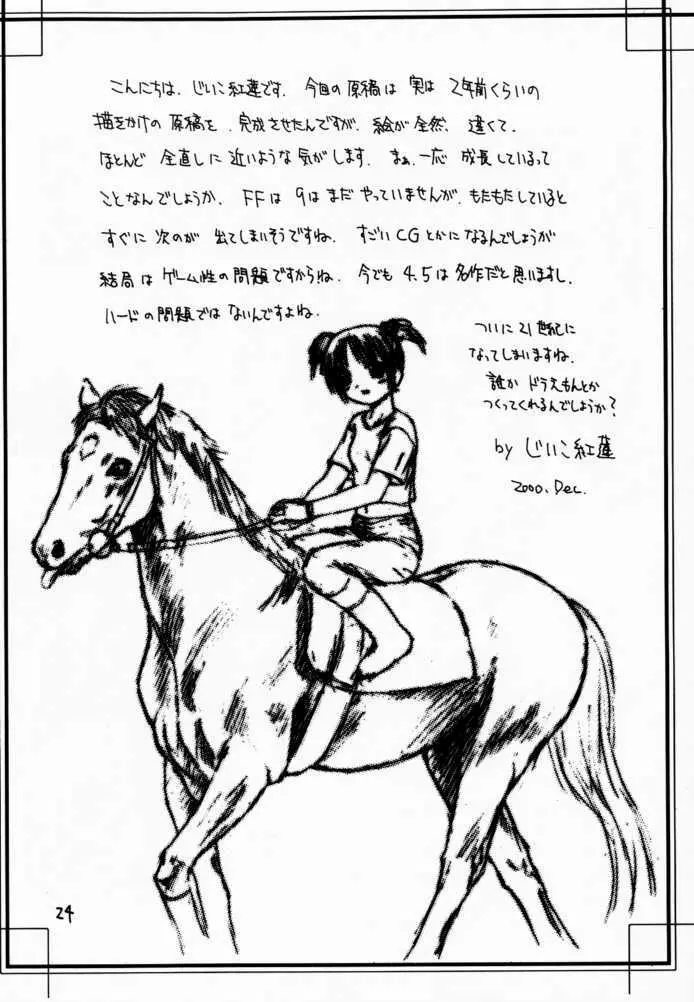 こんにちは、じいこ紅蓮です。今回の原稿は実は2年前くらいの
描きかけの原稿を、完成させたんですが、絵が全然、違くて、
ほとんど全直しに近いような気がします。まぁ、一応成長しているって
ことなんでしょうか。FFは9はまだやっていませんが、もたもたしていると
すぐに次のが出てしまいそうですね。すごいCGとかになるんでしょうが
結局はゲーム性の問題ですからね。今でも4、5は名作だと思いますし。
ハードの問題ではないんですよね。
ついに21世紀に
なってしまいますね。
誰かドラえもんとか
つくってくれるんでしょうか？
by じいこ紅蓮
2000.Dec.
24